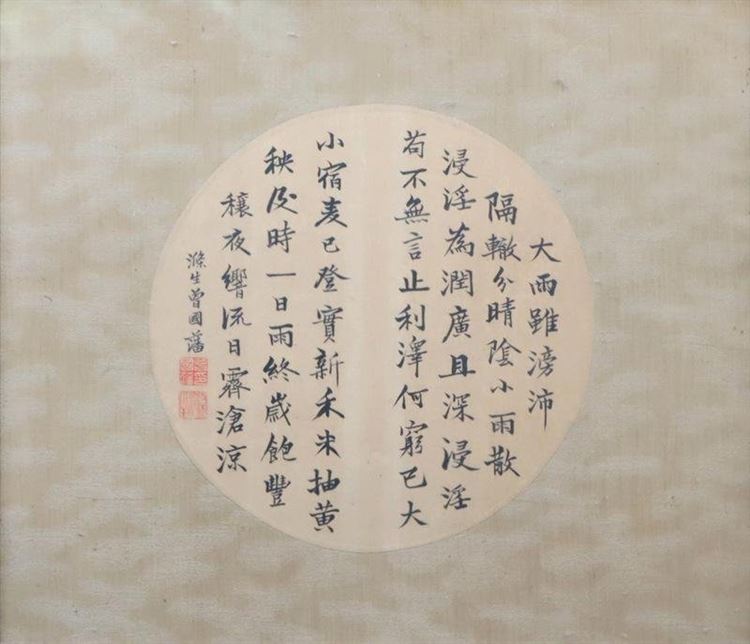 大雨雖滂沛
隔轍分晴陰小雨散
浸淫為潤廣且深浸淫
苟不無言止利澤何窮已大
小宿麦已登實新禾未抽黃
秧及時一日雨終歲飽豐
穰夜響流日霽滄涼
滌生曾國藩